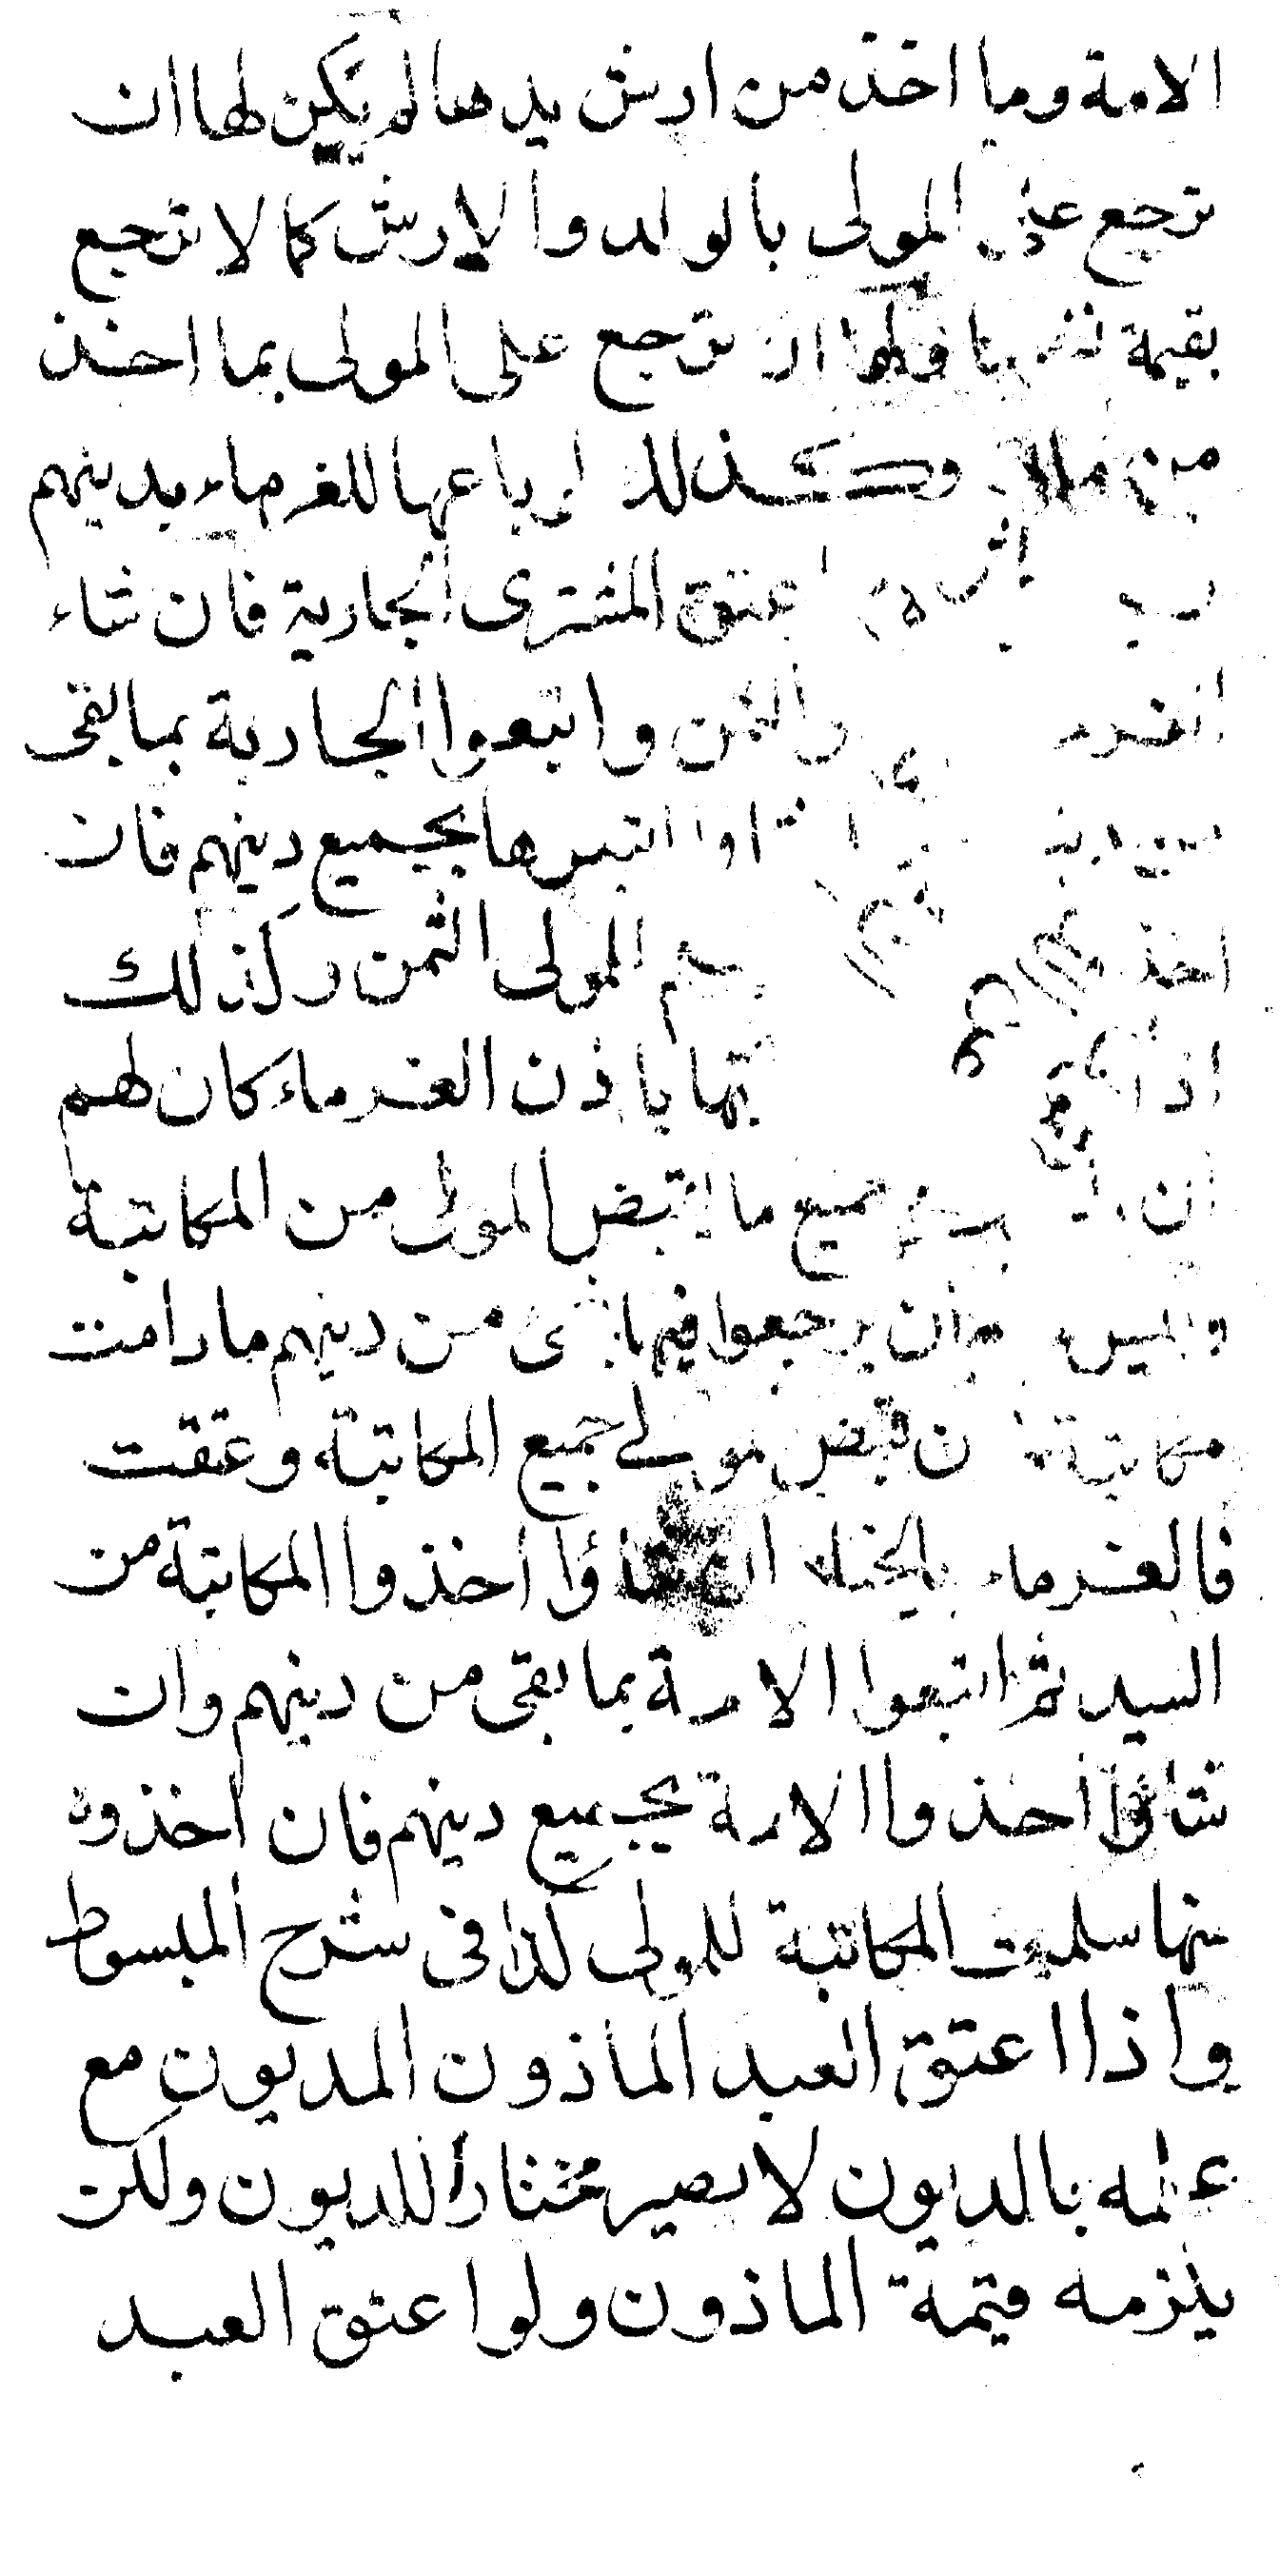 الامة وما اخذ من ارش يدها لم يكن لها ان
ترجع على المولى بالولد والارش كما لا ترجع
بقيمة نفسها ولها ان ترجع على المولى بما اخذ
من وكذلك لو باعها للغرماء بدينهم
اعتق المشترى الجارية فان شاء
الغرماء الثمن واتبعوا الجارية بما بقى
اتبعوها بجميع دينهم فان
اخذ المولى الثمن وكذلك
اذا باذن الغرماء كان لهم
ان جميع ما يقبض المولى من المكاتبة
وليس ان يرجعوا فيها بشئ من دينهم ما دامت
مكاتبة ان قبض المولى جميع المكاتبة وعتقت
فالغرماء بالخيار ان شاؤا اخذوا المكاتبة من
السيد ثم اتبعوا الامة بما بقى من دينهم وان
شاؤا اخذوا الامة بجميع دينهم فان اخذوه
منها سلمت المكاتبة للمولى كذا فى شرح المبسوط
واذا اعتق العبد الماذون المديون مع
علمه بالديون لا يصير مختارا للديون ولكن
يلزمه قيمة الماذون ولو اعتق العبد